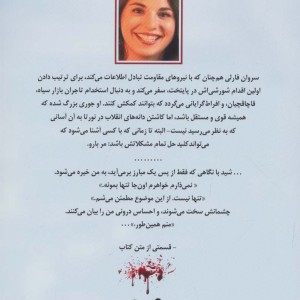 سروان فارلی هم‌چنان که با نیروهای مقاومت تبادل اطلاعات می‌کند، برای ترتیب دادن
اولین اقدام شورشی‌اش در پایتخت، سفر می‌کند و به دنبال استخدام تاجران بازار سیاه،
قاچاقچیان، و افراط‌گرایانی می‌گردد که بتوانند کمکش کنند. او جوری بزرگ شده که
همیشه قوی و مستقل باشد، اما کاشتن دانه‌های انقلاب در نورتا به آن آسانی
که به نظر می‌رسید نیست- البته تا زمانی که با کسی آشنا می‌شود که
می‌تواند کلید حل تمام مشکلاتش باشد: مر بارو.
.........
... شید با نگاهی که فقط از پس یک مبارز برمی‌آید، به من خیره می‌شود.
«نمی‌ذارم خواهرم اون‌جا تنها بمونه.»
«تنها نیست. از این موضوع مطمئن می‌شم.»
چشمانش سخت می‌شوند، و احساس درونی من را بیان می‌کنند.
«منم همین‌طور.»...
- قسمتی از متن کتاب